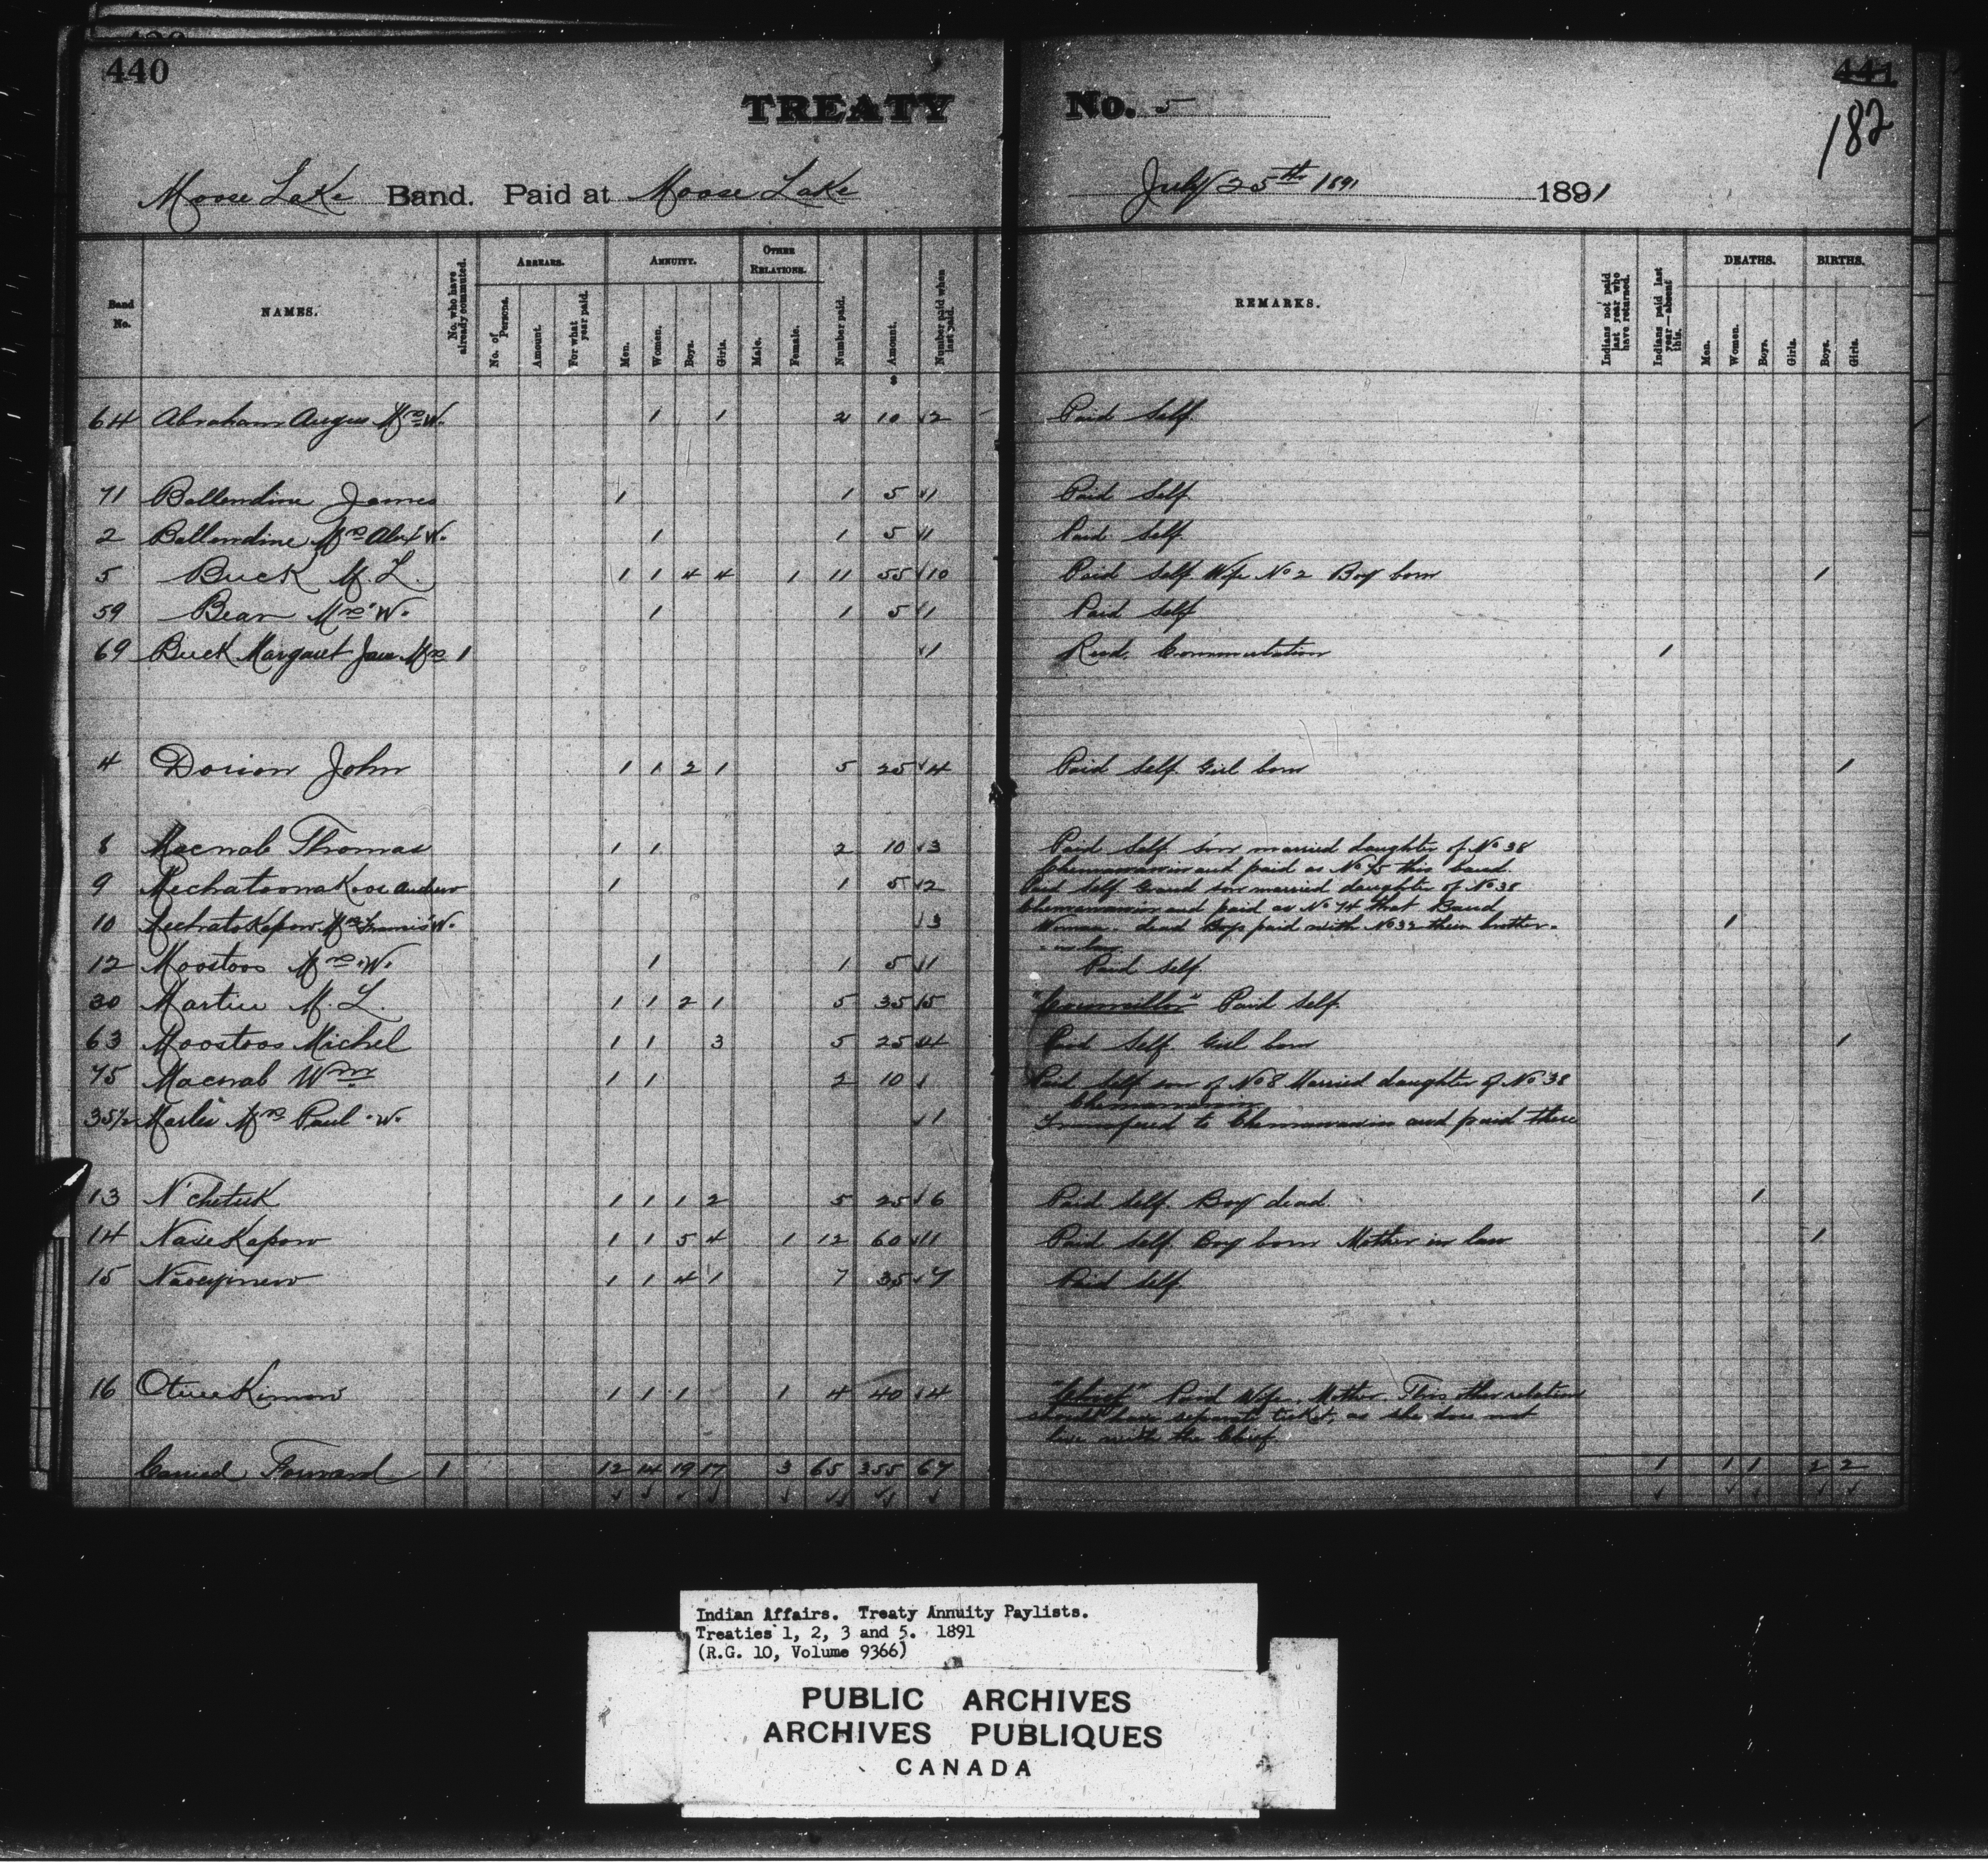 440
TREATY No. 5
441
182
Moose Lake Band. Paid at Moose Lake July 25th 1891 1891
Band No. NAMES. No. who have already commuted. ARREARS. No. of Persons. Amount. For what year paid. ANNUITY. Men. Women. Boys. Girls. OTHER RELATIONS. Male. Female. Number paid. Amount. Number paid when last paid. REMARKS. Indians not paid last year who have returned. Indians paid last year—absent this. DEATHS. Men. Women. Boys. Girls. BIRTHS. Boys. Girls.
$
64 Abraham Angus Mrs W. 1 1 2 10 √2 Paid Self.
71 Ballendine James 1 1 5 √1 Paid Self.
2 Ballendine Mrs Alex W. 1 1 5 √1 Paid Self.
5 Buck M. L. 1 1 4 4 1 11 55 √10 Paid Self Wife No 2 Boy born 1
59 Bear Mrs W. 1 1 5 √1 Paid Self
69 Buck Margaret Jane Mrs 1 √1 Recd. Commutation 1
4 Dorion John 1 1 2 1 5 25 √4 Paid Self Girl born 1
8 Macnab Thomas 1 1 2 10 √3 Paid Self son married daughter of No 38
Chemawawin and paid as No 75 this band.
9 MechatoonaKoos Andrew 1 1 5 √2 Paid Self Grand son married daughter of No 38
Chemawawin and paid as No 74 that Band
10 MechatoKapow Mrs Francis W. √3 Woman dead Boys paid with No 32 their brother- 1
-in law.
12 Moostoos Mrs W. 1 1 5 √1 Paid Self.
30 Martin M. L. 1 1 2 1 5 35 √5 "Councillor" Paid Self.
63 Moostoos Michel 1 1 3 5 25 √4 Paid Self. Girl born 1
75 Macnab Wm 1 1 2 10 √ Paid Self son of No 8 Married daughter of No 38
Chemawawin
35½ Mrs Paul W. √1 Transfered to Chemawawin and paid there
13 N'Chetuk 1 1 1 2 5 25 √6 Paid Self. Boy dead. 1
14 NaseKapow 1 1 5 4 1 12 60 √11 Paid Self. Boy born Mother in law 1
15 1 1 4 1 7 35 √7 Paid Self.
16 1 1 1 1 4 40 √4 "Chief" Paid Wife. Mother. This other relation
should have separate ticket, as she does not
live with the Chief.
Carried Forward 1 12 14 19 17 3 65 355 67 1 1 1 2 2
Indian Affairs. Treaty Annuity Paylists.
Treaties 1, 2, 3 and 5. 1891
(R.G. 10, Volume 9366)
PUBLIC ARCHIVES
ARCHIVES PUBLIQUES
CANADA